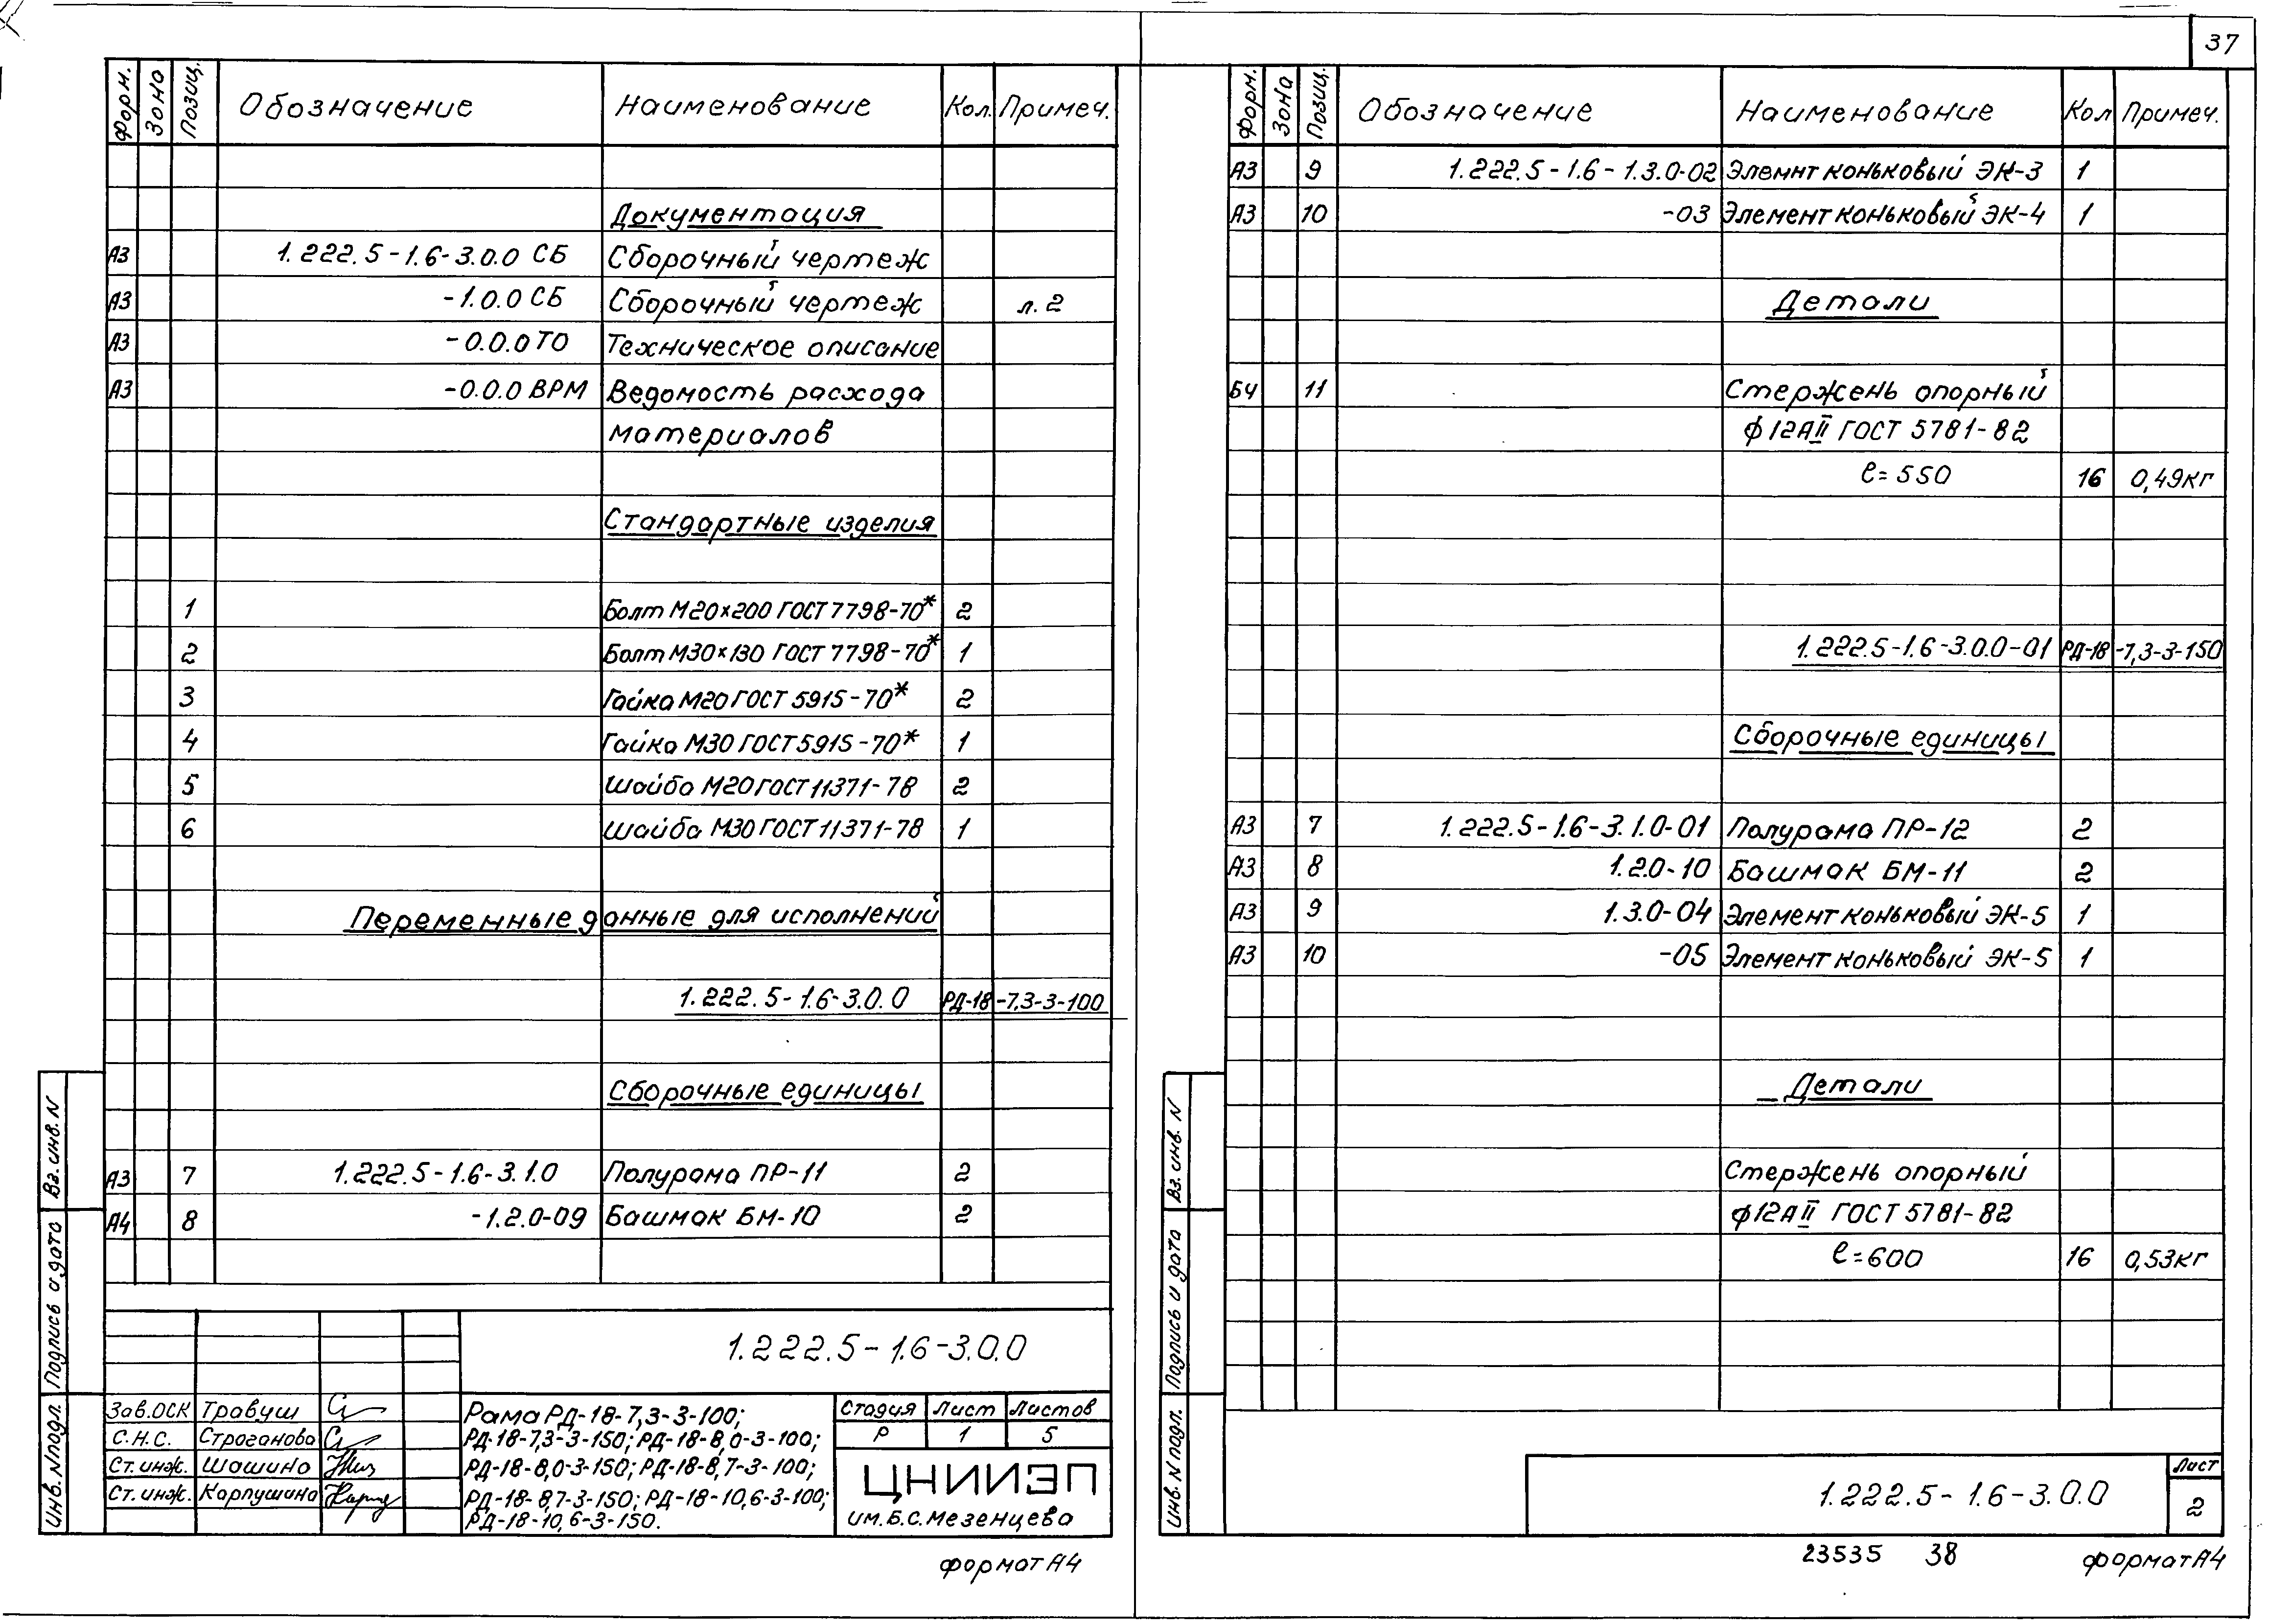 37
Форм. Зона Позиц. Обозначение Наименование Кол. Примеч.
Документация
А3 1.222.5-1.6-3.0.0 СБ Сборочный чертеж
А3 -1.0.0 СБ Сборочный чертеж л. 2
А3 -0.0.0 ТО Техническое описание
А3 -0.0.0 ВРМ Ведомость расхода
материалов
Стандартные изделия
1 Болт М20×200 ГОСТ 7798-70* 2
2 Болт М30×130 ГОСТ 7798-70* 1
3 Гайка М20 ГОСТ 5915-70* 2
4 Гайка М30 ГОСТ 5915-70* 1
5 Шайба М20 ГОСТ 11371-78 2
6 Шайба М30 ГОСТ 11371-78 1
Переменные данные для исполнений
1.222.5-1.6-3.0.0 РД-18-7,3-3-100
Сборочные единицы
А3 7 1.222.5-1.6-3.1.0 Полурама ПР-11 2
А4 8 -1.2.0-09 Башмак БМ-10 2
Вз. инв. N
Подпись и дата
Инв. N подл.
1.222.5-1.6-3.0.0
Зав. ОСК Травуш
С.Н.С. Строганова
Ст. инж. Шашина
Ст. инж. Карпушина
Рама РД-18-7,3-3-100;
РД-18-7,3-3-150; РД-18-8,0-3-100;
РД-18-8,0-3-150; РД-18-8,7-3-100;
РД-18-8,7-3-150; РД-18-10,6-3-100;
РД-18-10,6-3-150.
Стадия Лист Листов
Р 1 5
ЦНИИЭП
им. Б.С. Мезенцева
формат А4
Форм. Зона Позиц. Обозначение Наименование Кол Примеч.
А3 9 1.222.5-1.6-1.3.0-02 Элемнт коньковый ЭК-3 1
А3 10 -03 Элемент коньковый ЭК-4 1
Детали
БЧ 11 Стержень опорный
ф12АII ГОСТ 5781-82
ℓ=550 16 0,49кг
1.222.5-1.6-3.0.0-01 РД-18-7,3-3-150
Сборочные единицы
А3 7 1.222.5-1.6-3.1.0-01 Полурама ПР-12 2
А3 8 1.2.0-10 Башмак БМ-11 2
А3 9 1.3.0-04 Элемент коньковый ЭК-5 1
А3 10 -05 Элемент коньковый ЭК-5 1
Детали
Стержень опорный
ф12АII ГОСТ 5781-82
ℓ=600 16 0,53кг
Вз. инв. N
Подпись и дата
Инв. N подл.
1.222.5-1.6-3.0.0
Лист
2
23535 38
формат А4